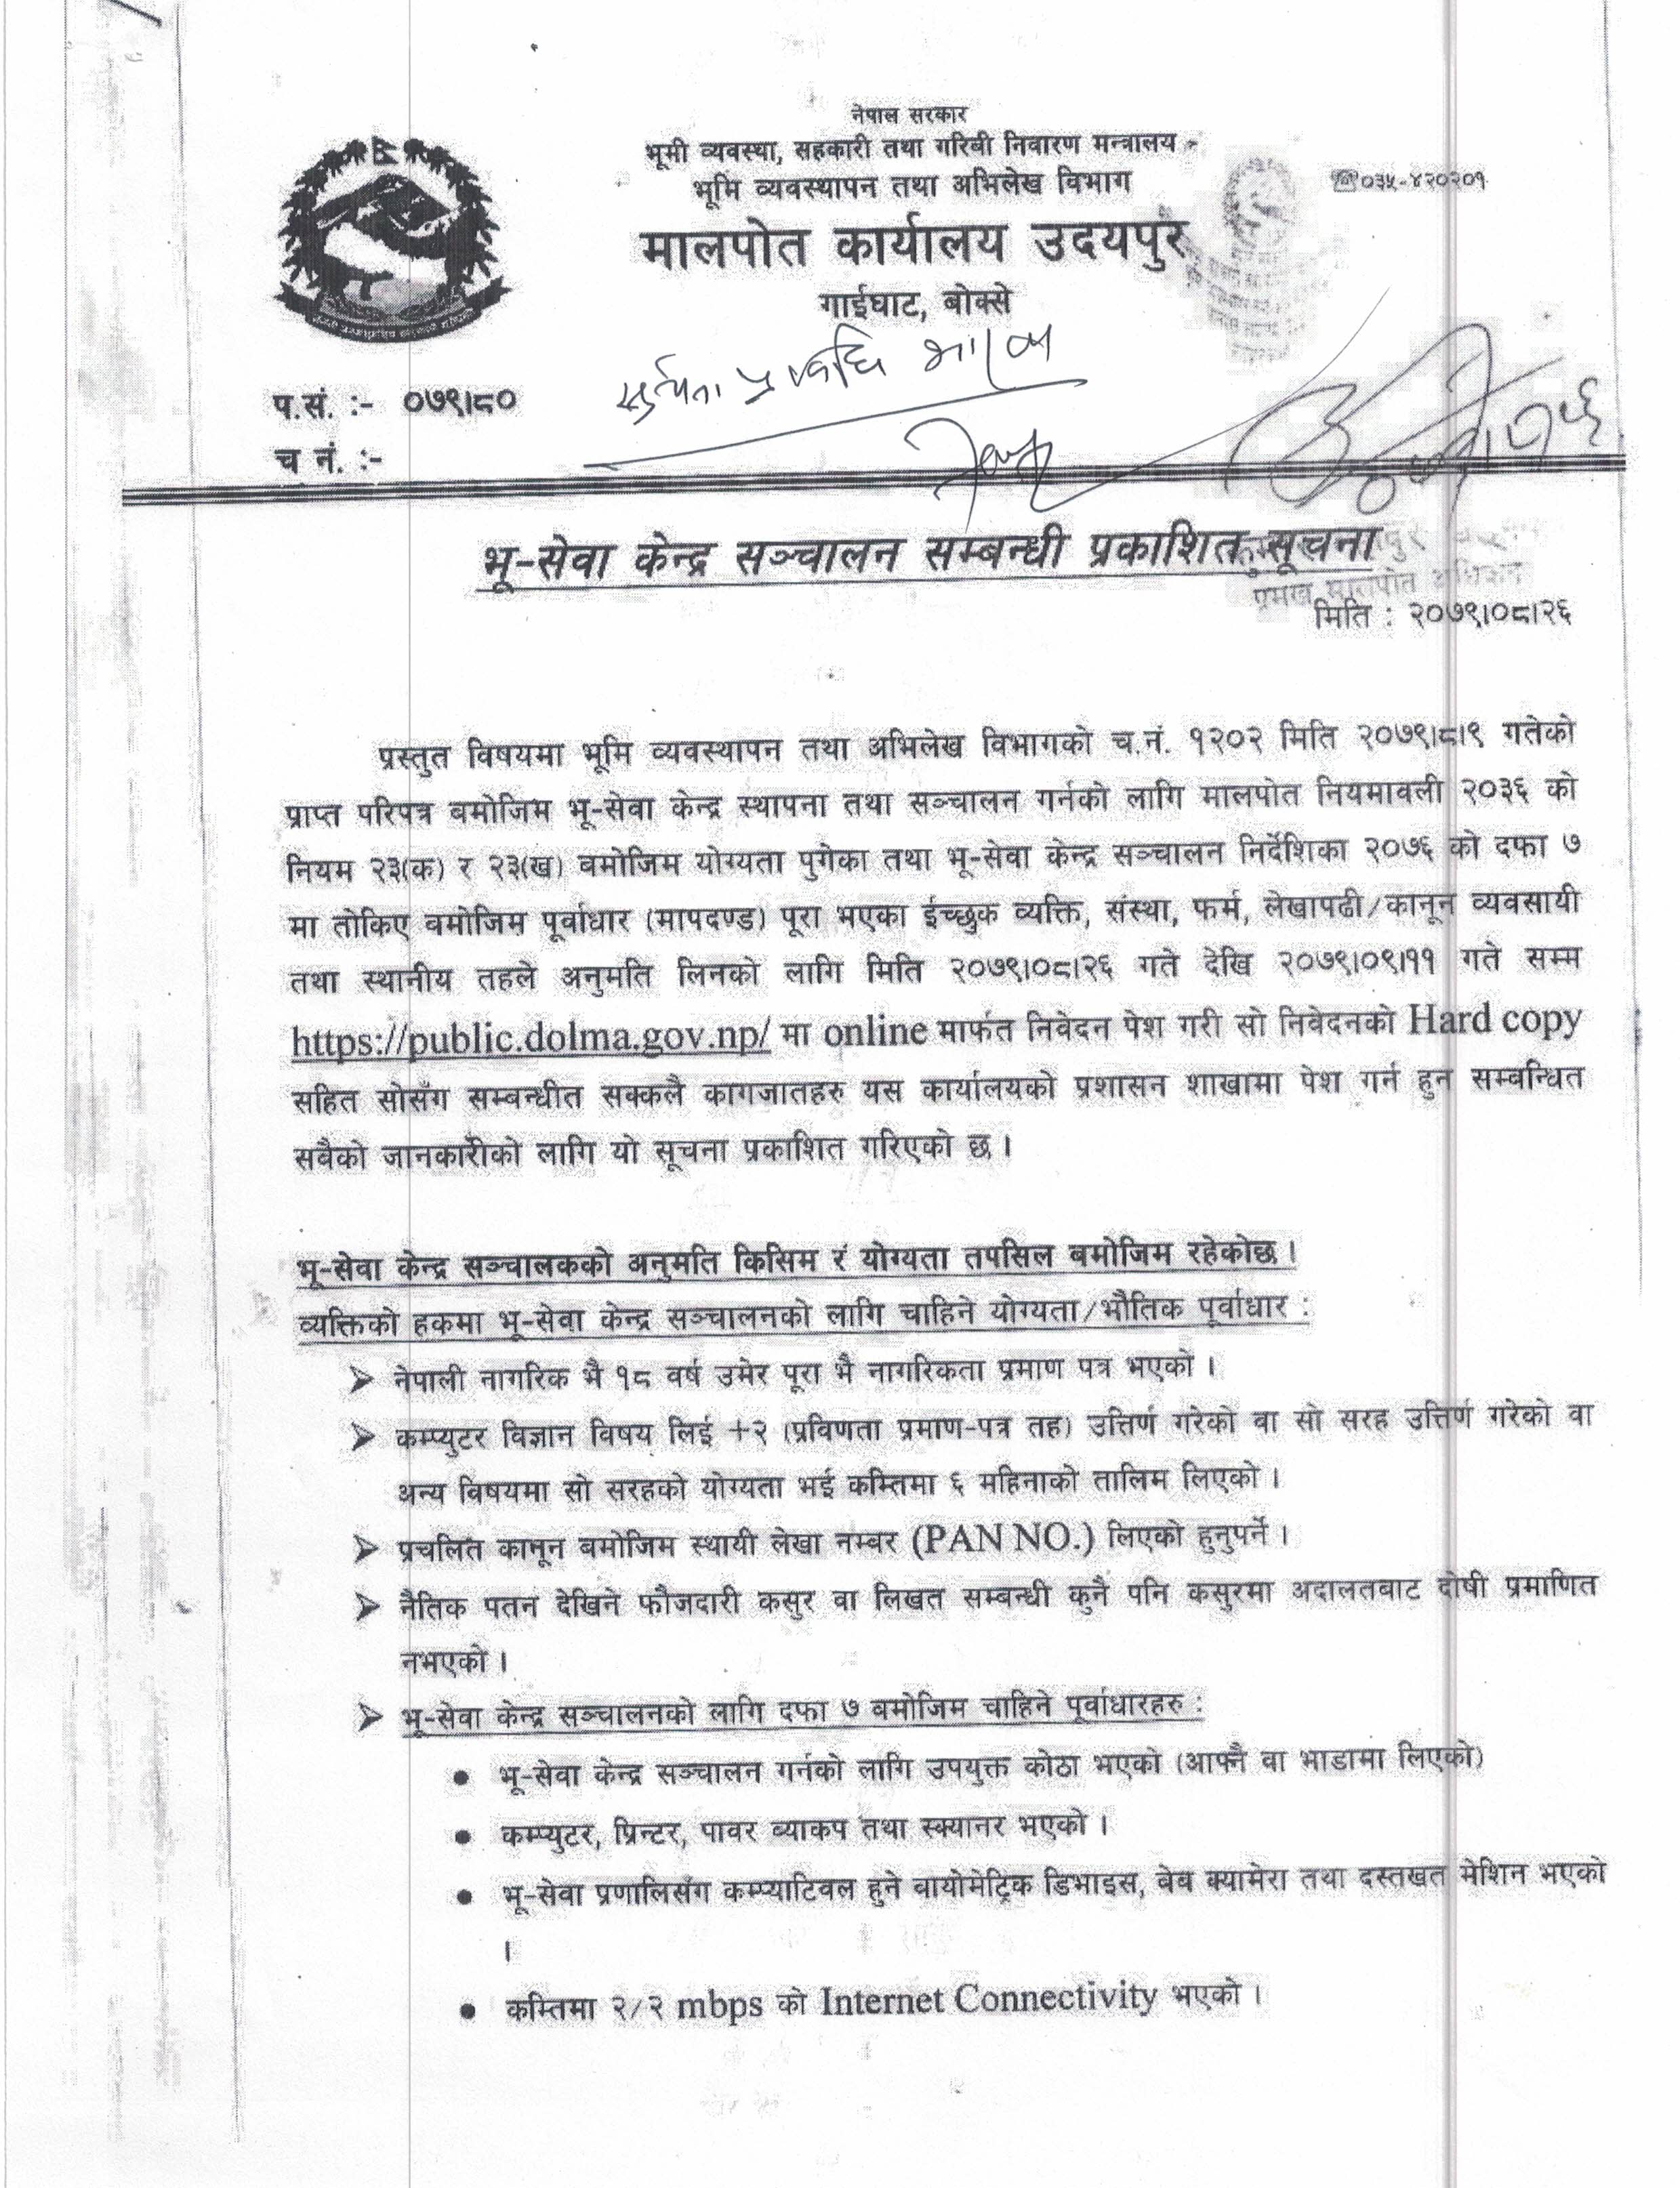 नेपाल सरकार
भूमी व्यवस्था, सहकारी तथा गरिबी निवारण मन्त्रालय
भूमि व्यवस्थापन तथा अभिलेख विभाग
☎०३५-४२०२०१
मालपोत कार्यालय उदयपुर
गाईघाट, बोक्से
प.सं. :- ०७९।८०
च नं. :-
भू-सेवा केन्द्र सञ्चालन सम्बन्धी प्रकाशित सूचना
प्रमुख मालपोत अधिकृत
मिति : २०७९।०८।२६
प्रस्तुत विषयमा भूमि व्यवस्थापन तथा अभिलेख विभागको च.नं. १२०२ मिति २०७९।८।९ गतेको
प्राप्त परिपत्र बमोजिम भू-सेवा केन्द्र स्थापना तथा सञ्चालन गर्नको लागि मालपोत नियमावली २०३६ को
नियम २३(क) र २३(ख) बमोजिम योग्यता पुगेका तथा भू-सेवा केन्द्र सञ्चालन निर्देशिका २०७६ को दफा ७
मा तोकिए बमोजिम पूर्वाधार (मापदण्ड) पूरा भएका ईच्छुक व्यक्ति, संस्था, फर्म, लेखापढी/कानून व्यवसायी
तथा स्थानीय तहले अनुमति लिनको लागि मिति २०७९।०८।२६ गते देखि २०७९।०९।११ गते सम्म
https://public.dolma.gov.np/ मा online मार्फत निवेदन पेश गरी सो निवेदनको Hard copy
सहित सोसँग सम्बन्धीत सक्कलै कागजातहरु यस कार्यालयको प्रशासन शाखामा पेश गर्न हुन सम्बन्धित
सबैको जानकारीको लागि यो सूचना प्रकाशित गरिएको छ ।
भू-सेवा केन्द्र सञ्चालकको अनुमति किसिम र योग्यता तपसिल बमोजिम रहेकोछ ।
व्यक्तिको हकमा भू-सेवा केन्द्र सञ्चालनको लागि चाहिने योग्यता/भौतिक पूर्वाधार :
➢ नेपाली नागरिक भै १८ वर्ष उमेर पूरा भै नागरिकता प्रमाण पत्र भएको ।
➢ कम्प्युटर विज्ञान विषय लिई +२ (प्रविणता प्रमाण-पत्र तह) उत्तिर्ण गरेको वा सो सरह उत्तिर्ण गरेको वा
अन्य विषयमा सो सरहको योग्यता भई कम्तिमा ६ महिनाको तालिम लिएको ।
➢ प्रचलित कानून बमोजिम स्थायी लेखा नम्बर (PAN NO.) लिएको हुनुपर्ने ।
➢ नैतिक पतन देखिने फौजदारी कसुर वा लिखत सम्बन्धी कुनै पनि कसुरमा अदालतबाट दोषी प्रमाणित
नभएको ।
➢ भू-सेवा केन्द्र सञ्चालनको लागि दफा ७ बमोजिम चाहिने पूर्वाधारहरु :
• भू-सेवा केन्द्र सञ्चालन गर्नको लागि उपयुक्त कोठा भएको (आफ्नै वा भाडामा लिएको)
• कम्प्युटर, प्रिन्टर, पावर ब्याकप तथा स्क्यानर भएको ।
• भू-सेवा प्रणालिसँग कम्प्याटिवल हुने बायोमेट्रिक डिभाइस, वेब क्यामेरा तथा दस्तखत मेशिन भएको
।
• कम्तिमा २/२ mbps को Internet Connectivity भएको ।